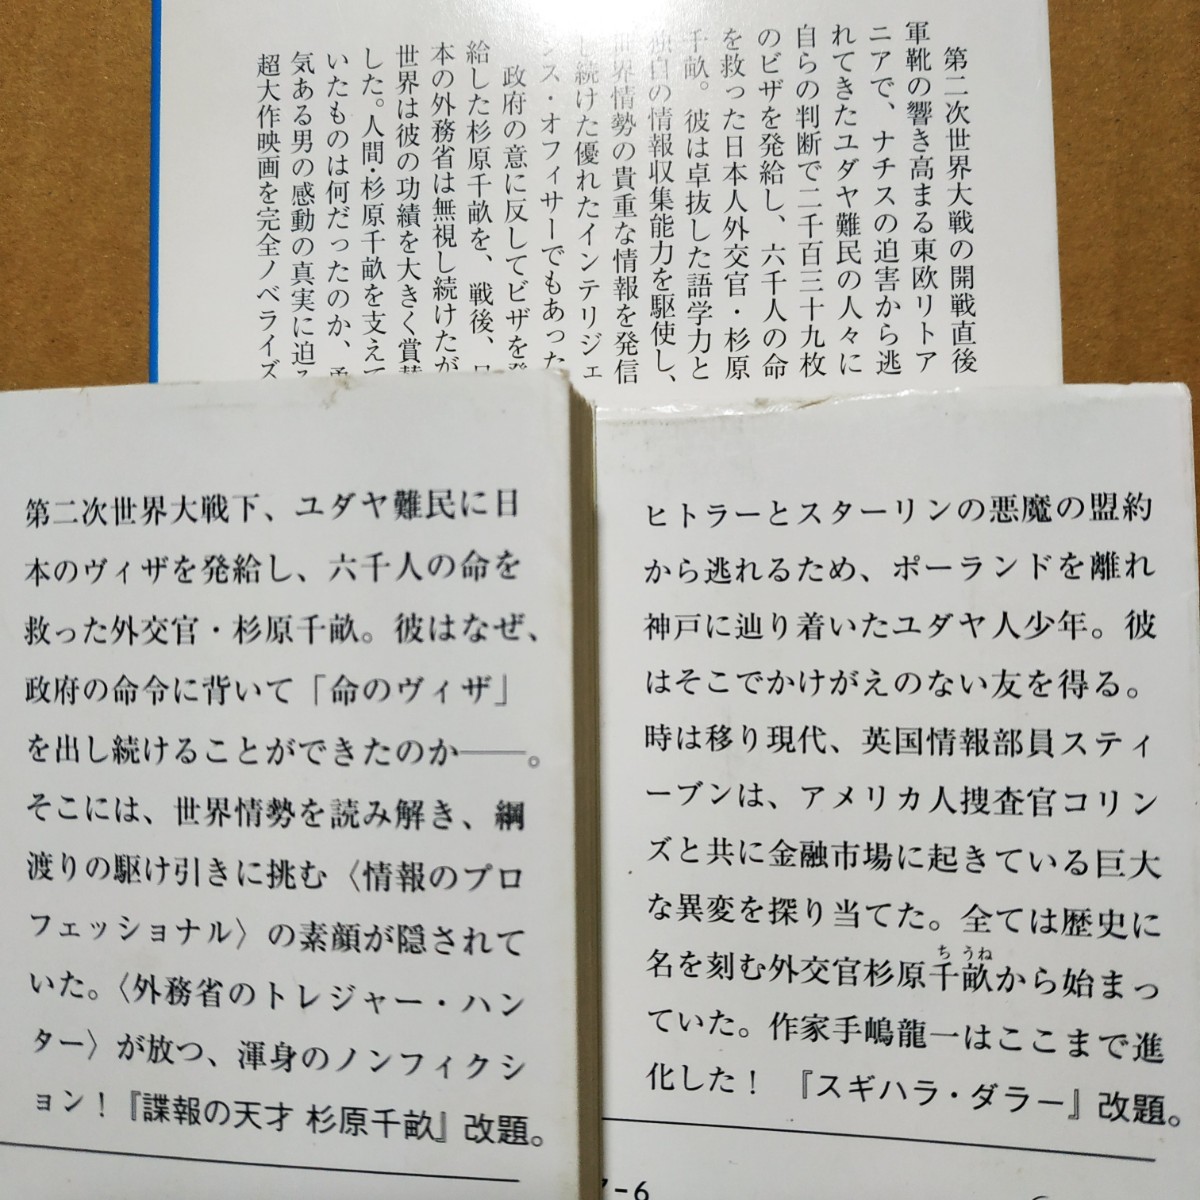 第二次世界大戦の開戦直後
軍靴の響き高まる東欧リトア
ニアで、ナチスの迫害から逃
れてきたユダヤ難民の人々に
自らの判断で二千百三十九枚
のビザを発給し、六千人の命
を救った日本人外交官・杉原
千畝。彼は卓抜した語学力と
独自の情報収集能力を駆使し、
世界情勢の貴重な情報を発信
し続けた優れたインテリジェ
ンス・オフィサーでもあった
政府の意に反してビザを発
給した杉原千畝を、戦後、日
本の外務省は無視し続けたが
世界は彼の功績を大きく賞賛
した。人間・杉原千畝を支えて
いたものは何だったのか、勇
気ある男の感動の真実に迫る
超大作映画を完全ノベライズ
第二次世界大戦下、ユダヤ難民に日
本のヴィザを発給し、六千人の命を
救った外交官・杉原千畝。彼はなぜ、
政府の命令に背いて「命のヴィザ」
を出し続けることができたのか――。
そこには、世界情勢を読み解き、綱
渡りの駆け引きに挑む〈情報のプロ
フェッショナル〉の素顔が隠されて
いた。〈外務省のトレジャー・ハン
ター〉が放つ、渾身のノンフィクシ
ョン！『諜報の天才 杉原千畝』改題。
ヒトラーとスターリンの悪魔の盟約
から逃れるため、ポーランドを離れ
神戸に辿り着いたユダヤ人少年。彼
はそこでかけがえのない友を得る。
時は移り現代、英国情報部員スティ
ーブンは、アメリカ人捜査官コリン
ズと共に金融市場に起きている巨大
な異変を探り当てた。全ては歴史に
名を刻む外交官杉原千畝から始まっ
ちうね
ていた。作家手嶋龍一はここまで進
化した！『スギハラ・ダラー』改題。
7-6